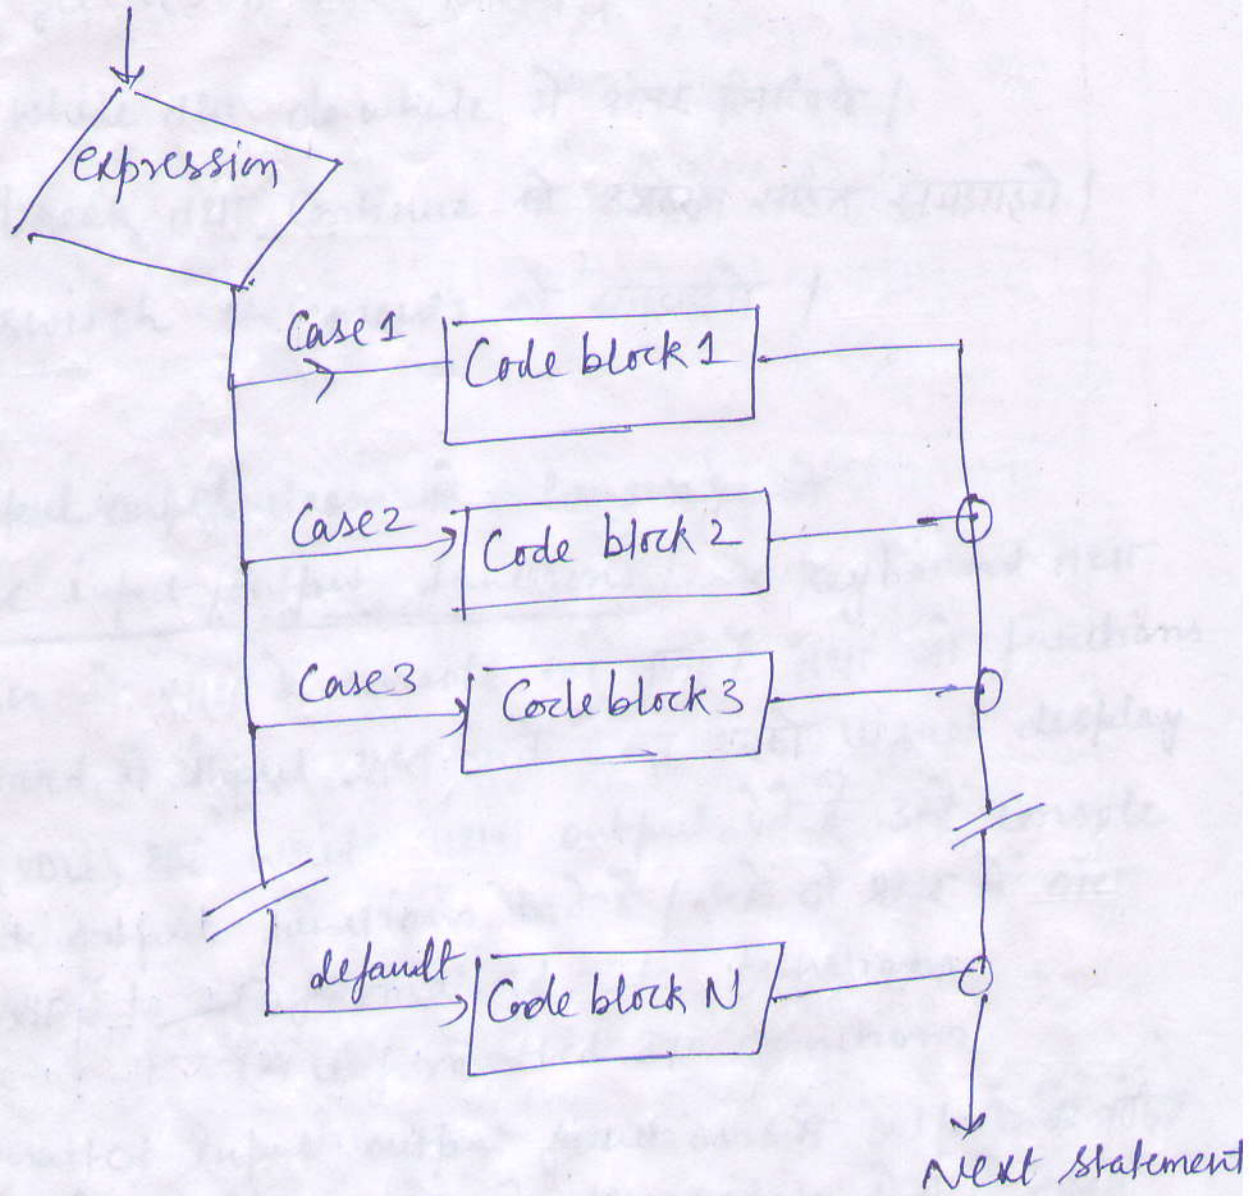 expression
Case 1
Code block 1
Case 2
Code block 2
Case 3
Code block 3
default
Code block N
Next statement